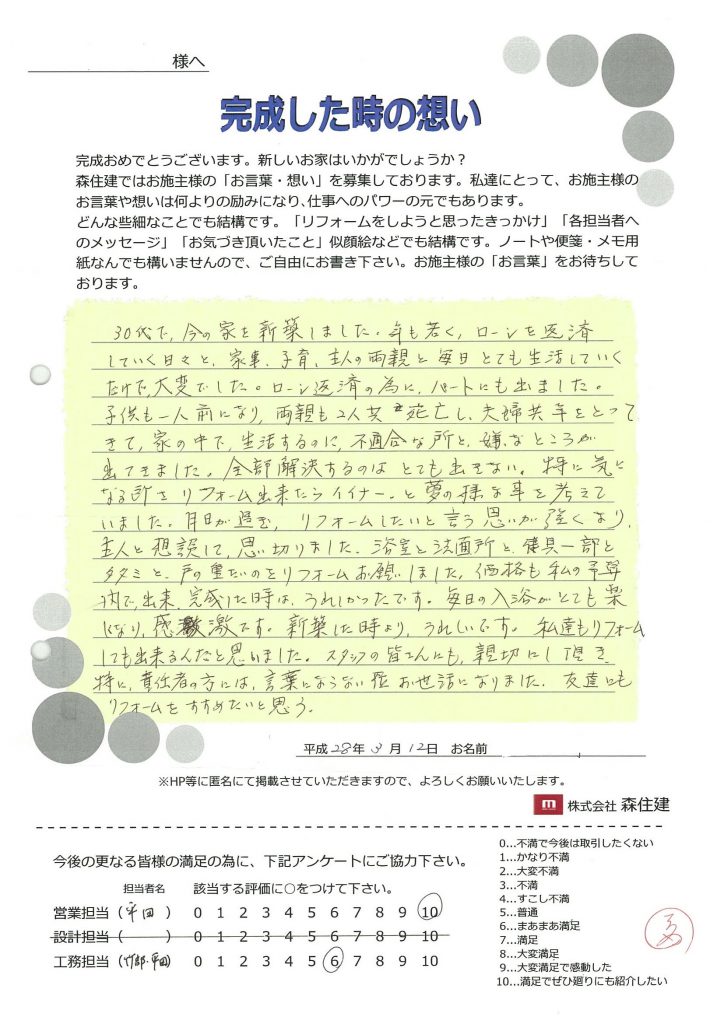 様へ
完成した時の想い
完成おめでとうございます。新しいお家はいかがでしょうか？
森住建ではお施主様の「お言葉・想い」を募集しております。私達にとって、お施主様の
お言葉や想いは何よりの励みになり、仕事へのパワーの元でもあります。
どんな些細なことでも結構です。「リフォームをしようと思ったきっかけ」「各担当者へ
のメッセージ」「お気づき頂いたこと」似顔絵などでも結構です。ノートや便箋・メモ用
紙なんでも構いませんので、ご自由にお書き下さい。お施主様の「お言葉」をお待ちして
おります。
30代で、今の家を新築しました。年も若く、ローンを返済
していく日々と、家事、子育、主人の両親と毎日とても生活していく
だけで、大変でした。ローン返済の為に、パートにも出ました。
子供も一人前になり、両親も2人共死亡し、夫婦共年をとって
きて、家の中で、生活するのに、不適合な所と、嫌なところが
出てきました。全部解決するのはとても出きない。特に気に
なる所をリフォーム出来たらイイナー。と夢の様な事を考えて
いました。月日が過ぎ、リフォームしたいと言う思いが強くなり、
主人と相談して、思い切りました。浴室と洗面所と、建具一部と
タタミと、戸の重たいのをリフォームお願いしました。価格も私の予算
内で、出来、完成した時は、うれしかったです。毎日の入浴がとても楽
になり、感激です。新築した時より、うれしいです。私達もリフォーム
しても出来るんだと思いました。スタッフの皆さんにも、親切にし頂き
特に、責任者の方には、言葉にならない程お世話になりました。友達にも
リフォームをすすめたいと思う。
平成28年3月12日 お名前
※HP等に匿名にて掲載させていただきますので、よろしくお願いいたします。
m 株式会社 森住建
今後の更なる皆様の満足の為に、下記アンケートにご協力下さい。
担当者名 該当する評価に○をつけて下さい。
営業担当（平田） 0 1 2 3 4 5 6 7 8 9 10
設計担当（ ） 0 1 2 3 4 5 6 7 8 9 10
工務担当（竹部・平田） 0 1 2 3 4 5 6 7 8 9 10
0…不満で今後は取引したくない
1…かなり不満
2…大変不満
3…不満
4…すこし不満
5…普通
6…まあまあ満足
7…満足
8…大変満足
9…大変満足で感動した
10…満足でぜひ廻りにも紹介したい